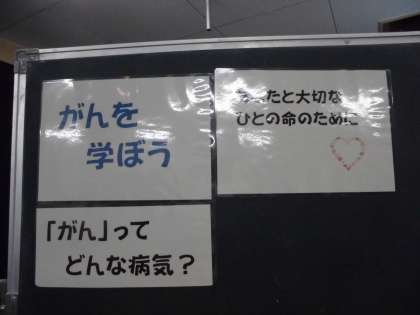 がんを
学ぼう
あなたと大切な
ひとの命のために
「がん」って
どんな病気？